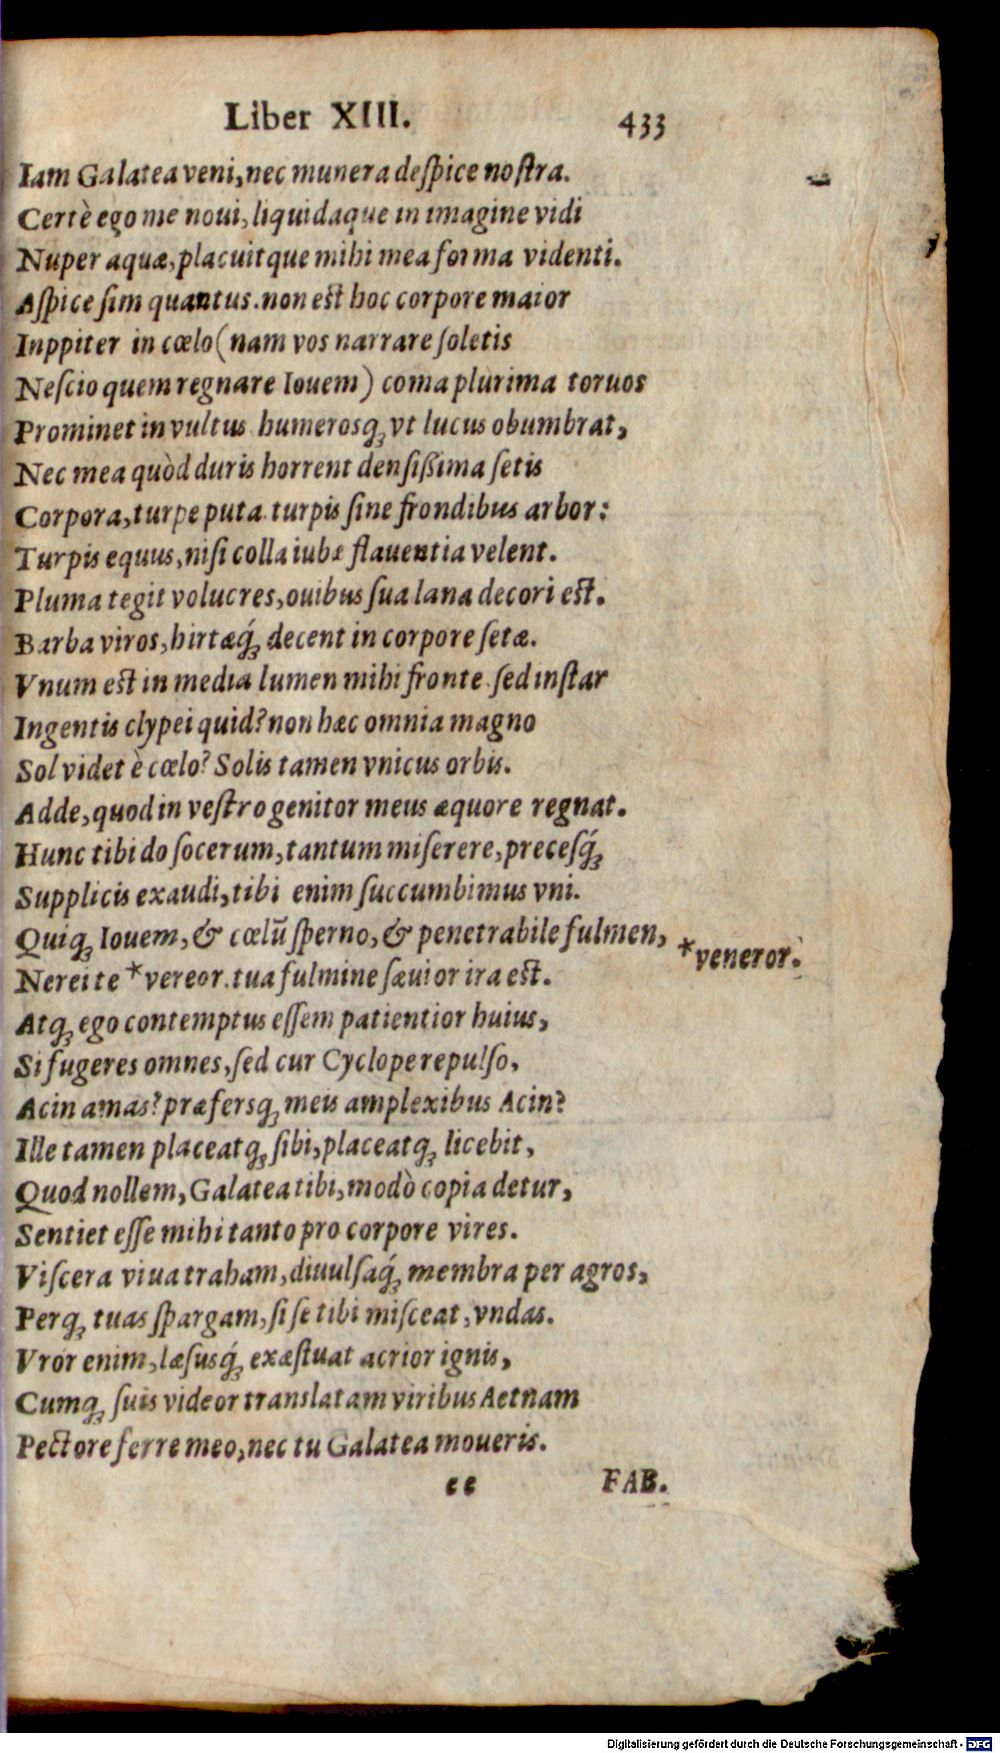 Liber XIII. 433
Iam Galatea veni, nec munera deſpice noſtra.
Certè ego me noui, liquidaque in imagine vidi
Nuper aquæ, placuitque mihi mea forma videnti.
Aſpice ſim quantus. non est hoc corpore maior
Inppiter in cœlo (nam vos narrare ſoletis
Neſcio quem regnare Iouem) coma plurima toruos
Prominet in vultus humerosq́ꝫ vt lucus obumbrat,
Nec mea quòd duris horrent denſiſſima ſetis
Corpora, turpe puta. turpis ſine frondibus arbor:
Turpis equus, niſi colla iubæ flauentia velent.
Pluma tegit volucres, ouibus ſua lana decori est.
Barba viros, hirtæq́ꝫ decent in corpore ſetæ.
Vnum est in media lumen mihi fronte. ſed inſtar
Ingentis clypei quid? non hæc omnia magno
Sol videt è cœlo? Solis tamen vnicus orbis.
Adde, quod in veſtro genitor meus æquore regnat.
Hunc tibi do ſocerum, tantum miſerere, preceſq́ꝫ
Supplicis exaudi, tibi enim ſuccumbimus vni.
Quiqꝫ Iouem, & cœlū ſperno, & penetrabile fulmen,
*veneror.
Nerei te *vereor. tua fulmine ſæuior ira est.
Atqꝫ ego contemptus eſſem patientior huius,
Si fugeres omnes, ſed cur Cyclope repulſo,
Acin amas? præfersqꝫ meis amplexibus Acin?
Ille tamen placeatqꝫ ſibi, placeatqꝫ licebit,
Quod nollem, Galatea tibi, modò copia detur,
Sentiet eſſe mihi tanto pro corpore vires.
Viſcera viua traham, diuulſaq́ꝫ membra per agros,
Perqꝫ tuas ſpargam, ſi ſe tibi miſceat, vndas.
Vror enim, læſusq́ꝫ exæſtuat acrior ignis,
Cumqꝫ ſuis videor translatam viribus Aetnam
Pectore ferre meo, nec tu Galatea moueris.
ee FAB.
Digitalisierung gefördert durch die Deutsche Forschungsgemeinschaft - DFG